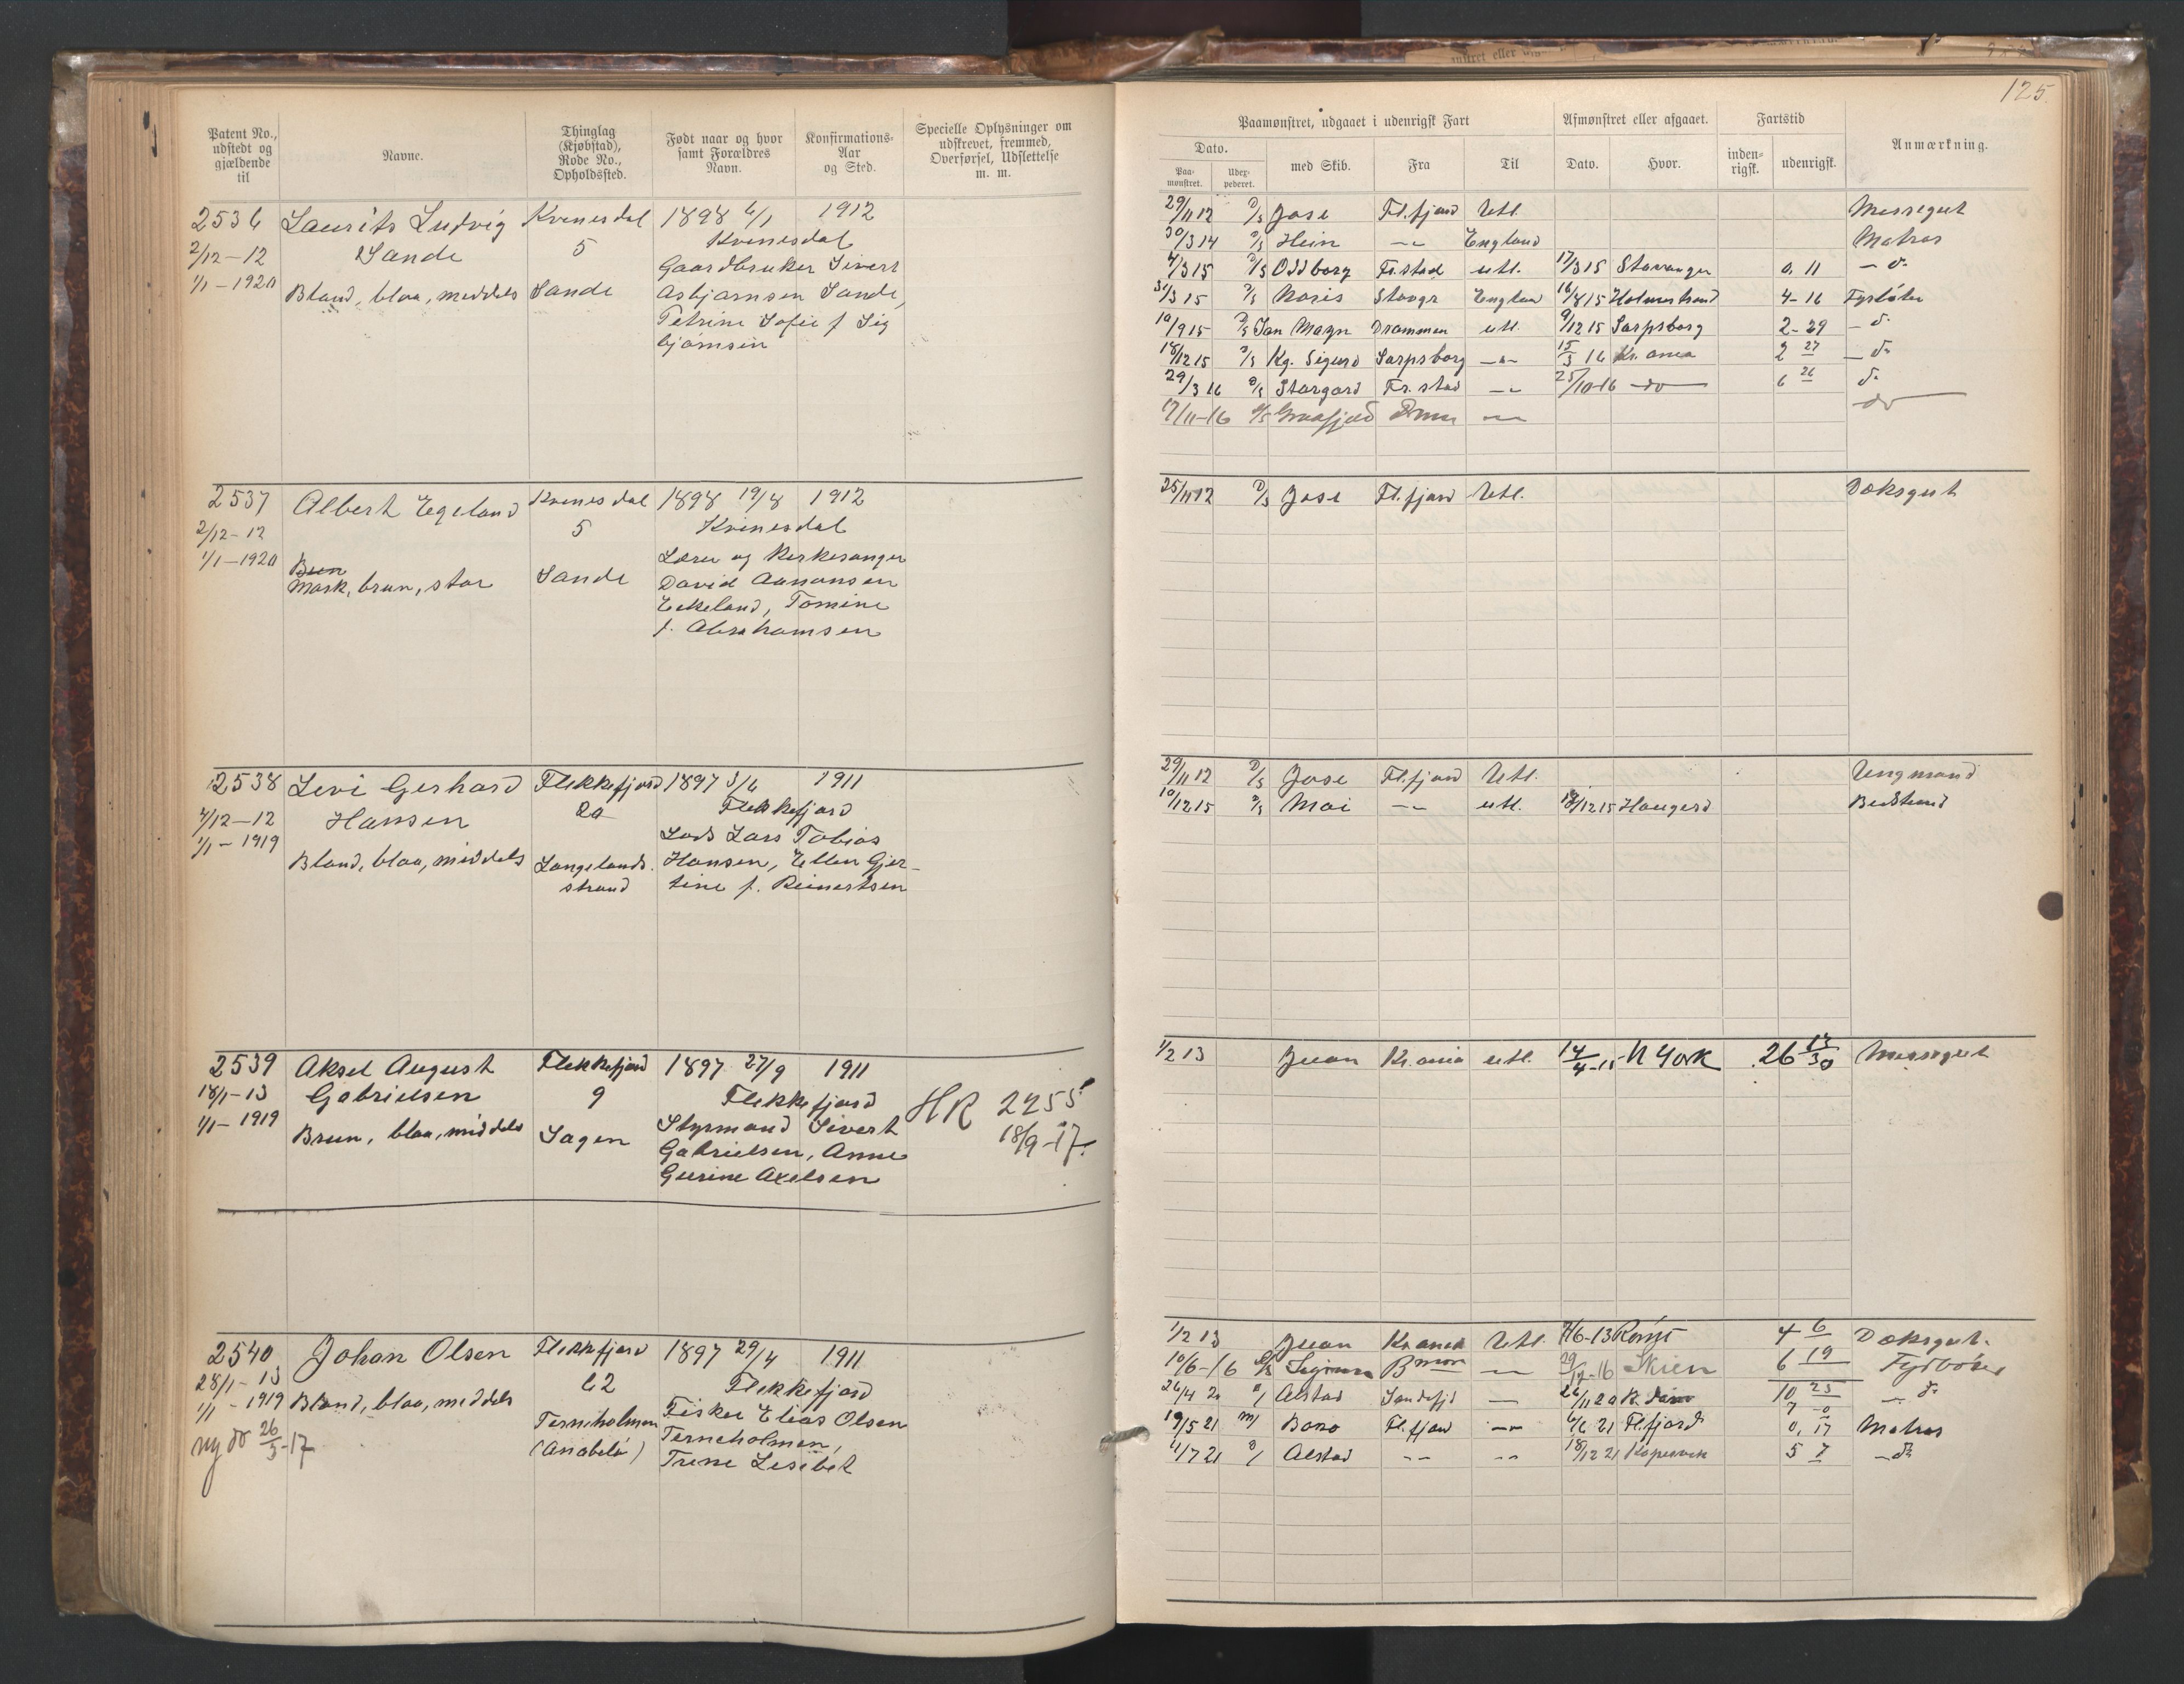 125.
Patent No., udstedt og gjældende til
Navne.
Thinglag (Kjøbstad), Rode No., Opholdssted.
Født naar og hvor samt Forældres Navn.
Konfirmations-Aar og Sted.
Specielle Oplysninger om udskrevet, fremmed, Overførsel, Udslettelse m. m.
Paamønstret, udgaaet i udenrigsk Fart
Afmønstret eller afgaaet.
Fartstid
Anmærkning.
Dato.
med Skib.
Fra
Til
Dato.
Hvor.
inden-rigsk.
udenrigsk.
Paa-mønstret.
Udex-pederet.
2536 Laurits Ludvig Kvinesdal 1898 6/1 1912
2/12-12 Sande 5 Kvinesdal
1/1-1920 Gaardbruker Sivert
Blond, blaa, middels Sande Asbjørnsen Sande,
Petrine Sofie f Sig
bjørnsen
29/11 12 D/S Jose Fl.fjord Utl. Messegut
30/3 14 D/S Hein -"- England Matros
4/3 15 D/S Oddborg Fr.stad utl. 17/3 15 Stavanger 0, 11 - do
31/3 15 D/S Noris Stavgr England 16/8 15 Holmestrand 4-16 Fyrbøter
10/9 15 D/S San Magn Drammen utl. 9/12 15 Sarpsborg 2-29 - do
18/12 15 D/S Kg. Sigurd Sarpsborg -"- 15/3 16 Kr.ania 2 27 - do
29/3 16 D/S Stargard Fr.stad -"- 25/10-16 -do- 6 26 do
17/11-16 D/S -"- do
2537 Albert Egeland Kvinesdal 1898 19/8 1912
2/12-12 5 Kvinesdal
1/1-1920 Brun Lærer og Kirkesanger
Mørk, brun, stor Sande David Aanonsen
Eekeland, Tomine
f. Abrahamsen
25/11 12 D/S Jose Fl.fjord Utl. Dæksgut
2538 Levi Gerhard Flekkefjord 1897 3/6 1911
4/12-12 Hansen 2a Flekkefjord
1/1-1919 Lods Lars Tobias
Blond, blaa, middels Langelands- Hansen, Ellen Gjer-
strand tine f. Reinertsen
29/11 12 D/S Jose Fl.fjord Utl. Ungmand
10/12 15 D/S Mai -"- utl. 19/12 15 Haugesd Bedstmd
2539 Aksel August Flekkefjord 1897 27/9 1911
18/1-13 Gabrielsen 9 Flekkefjord
1/1-1919 Styrmand Sivert
Brun, blaa, middels Lagen Gabrielsen, Anne
Gurine Axelsen
HR 2255
18/9-17.
1/2 13 Juan Kr.ania utl. 14/4-15 N York 26 13/30 Messegut
2540 Johan Olsen Flekkefjord 1897 29/4 1911
28/1-13 62 Flekkefjord
1/1-1919 Blond, blaa, middels Fisker Elias Olsen
ny do 26/3-17 Terneholmen Terneholmen,
(Anabelø) Trine Lisebet
1/2 13 Juan Kr.ania Utl. 7/6-13 4 6 Dæksgut.
10/6-16 D/S -"- 29/12-16 Skien 6 19 Fyrbøter
26/4 20 D/ Alstad Sandefjd -"- 26/11 20 10 25 - do
7 0
19/5 21 M/ Boro Fl.fjord -"- 6/6 21 Fl.fjord 0, 17 Matros
11/7 21 D/ Alstad -"- -"- 18/12 21 Kopervik 5 7 - do